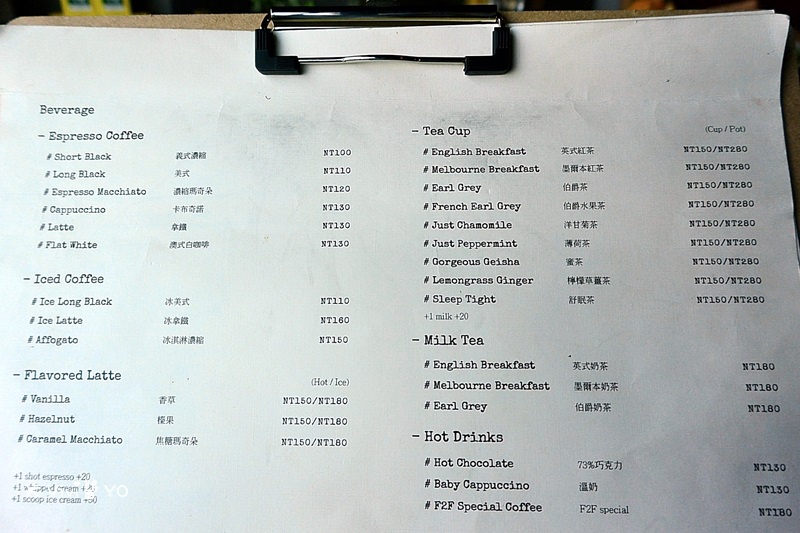 Beverage
- Espresso Coffee
# Short Black 義式濃縮 NT100
# Long Black 美式 NT110
# Espresso Macchiato 濃縮瑪奇朵 NT120
# Cappuccino 卡布奇諾 NT130
# Latte 拿鐵 NT130
# Flat White 澳式白咖啡 NT130
- Iced Coffee
# Ice Long Black 冰美式 NT110
# Ice Latte 冰拿鐵 NT160
# Affogato 冰淇淋濃縮 NT150
- Flavored Latte (Hot / Ice)
# Vanilla 香草 NT150/NT180
# Hazelnut 榛果 NT150/NT180
# Caramel Macchiato 焦糖瑪奇朵 NT150/NT180
+1 shot espresso +20
+1 whipped cream
+1 scoop ice cream +50
YO
- Tea Cup (Cup / Pot)
# English Breakfast 英式紅茶 NT150/NT280
# Melbourne Breakfast 墨爾本紅茶 NT150/NT280
# Earl Grey 伯爵茶 NT150/NT280
# French Earl Grey 伯爵水果茶 NT150/NT280
# Just Chamomile 洋甘菊茶 NT150/NT280
# Just Peppermint 薄荷茶 NT150/NT280
# Gorgeous Geisha 蜜茶 NT150/NT280
# Lemongrass Ginger 檸檬草薑茶 NT150/NT280
# Sleep Tight 舒眠茶 NT150/NT280
+1 milk +20
- Milk Tea
# English Breakfast 英式奶茶 NT180
# Melbourne Breakfast 墨爾本奶茶 NT180
# Earl Grey 伯爵奶茶 NT180
- Hot Drinks
# Hot Chocolate 73%巧克力 NT130
# Baby Cappuccino 溫奶 NT130
# F2F Special Coffee F2F special NT180